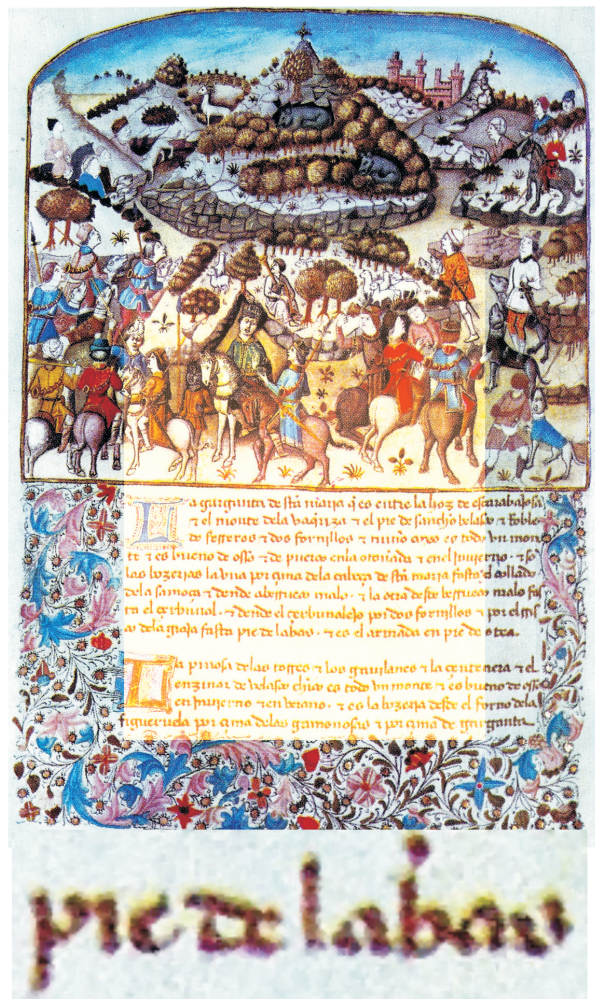 La garganta de sta maria q es entre la hoz de escarabajosa
& el monte dela & el pie de sancho belasco & roble
de & dos fornillos & nuño arco es todo vn mon
te & es bueno de osso & de puerco enla otonada & enel jnuierno . & so
las bozerias la vna por çima dela cabeça de sta maria fasta el collado
dela samoça & dende abesueco malo . & la otra desde besueco malo fas
ta el cerbunal . & dende el cerbunalejo por dos fornillos & por el
ar dela graja fasta pie de labao . & es el armada en pie de otea .
La pinosa delas torres & los gauilanes & la centenera & el
enzinar de velasco chico es todo vn monte & es bueno de osso
en jnuierno & en verano . & es la bozeria desde el forno dela
figueruela por çima delas gamonosas & por çima de garganta
pie de labao